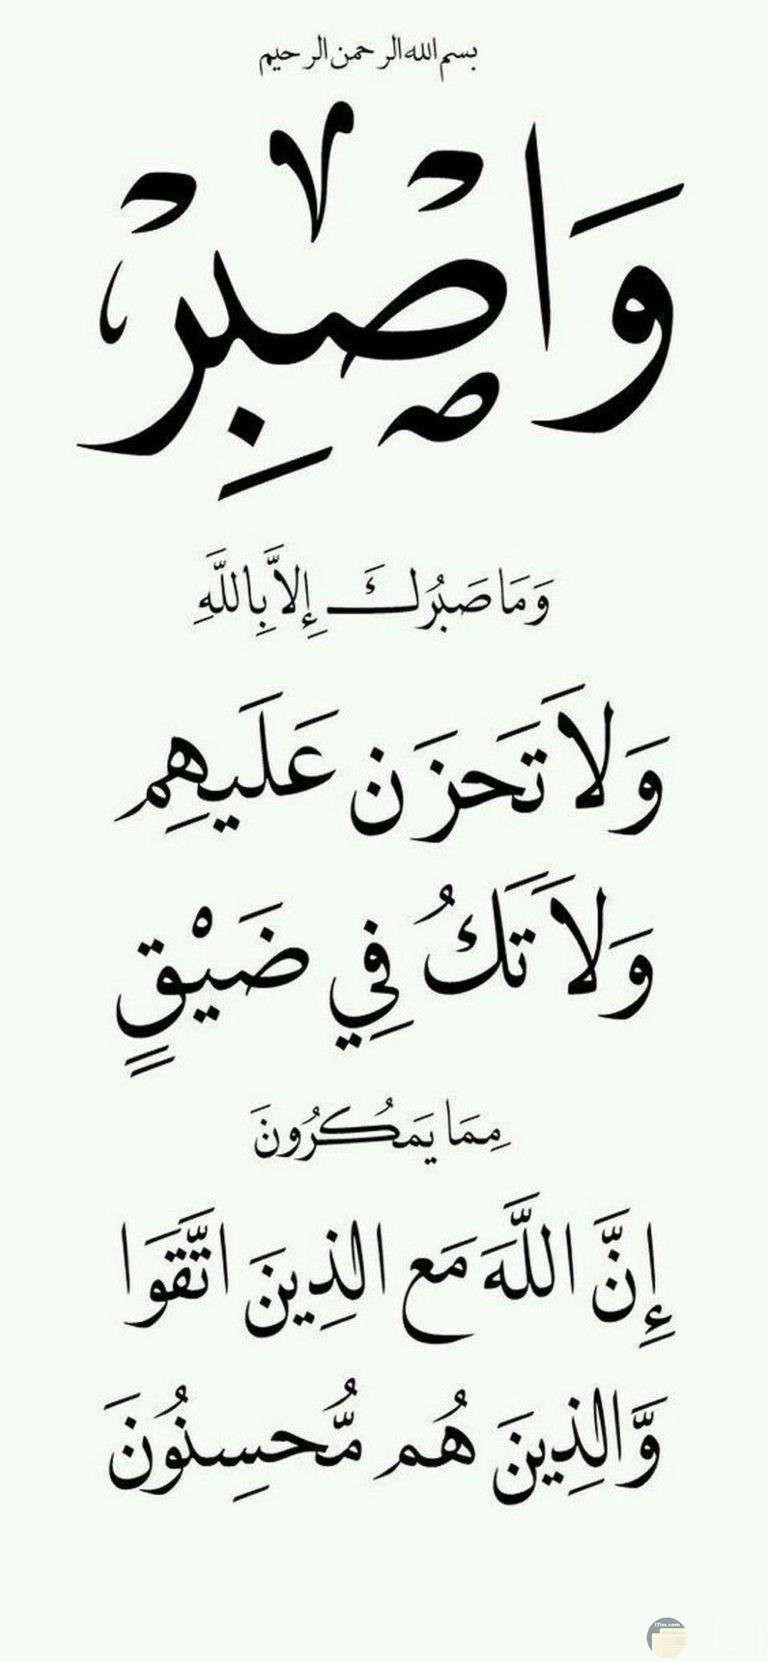 بسم الله الرحمن الرحيم
وَاصْبِرْ
وَمَا صَبْرُكَ إِلاَّ بِاللَّهِ
وَلاَ تَحزَن عَلَيهِم
وَلاَ تَكُ فِي ضَيْقٍ
مِمَا يَمكُرُونَ
إِنَّ اللَّهَ مَع الذِينَ اتَّقَوا
وَّالذِينَ هُم مُّحسِنُونَ
i7lm.com
احلم